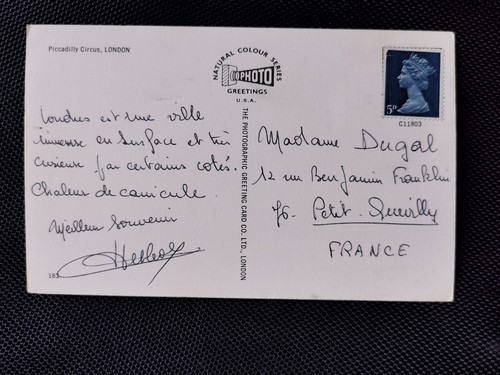 Piccadilly Circus, LONDON
NATURAL COLOUR SERIES
PHOTO
GREETINGS
U.S.A.
THE PHOTOGRAPHIC GREETING CARD CO. LTD., LONDON
5D
C11803
Londres est une ville
immense en surface et très
curieuse par certains cotés.
Chaleur de canicule
Meilleur souvenir
Madame Dugal
12 rue Benjamin Franklin
76- Petit-Quevilly
FRANCE